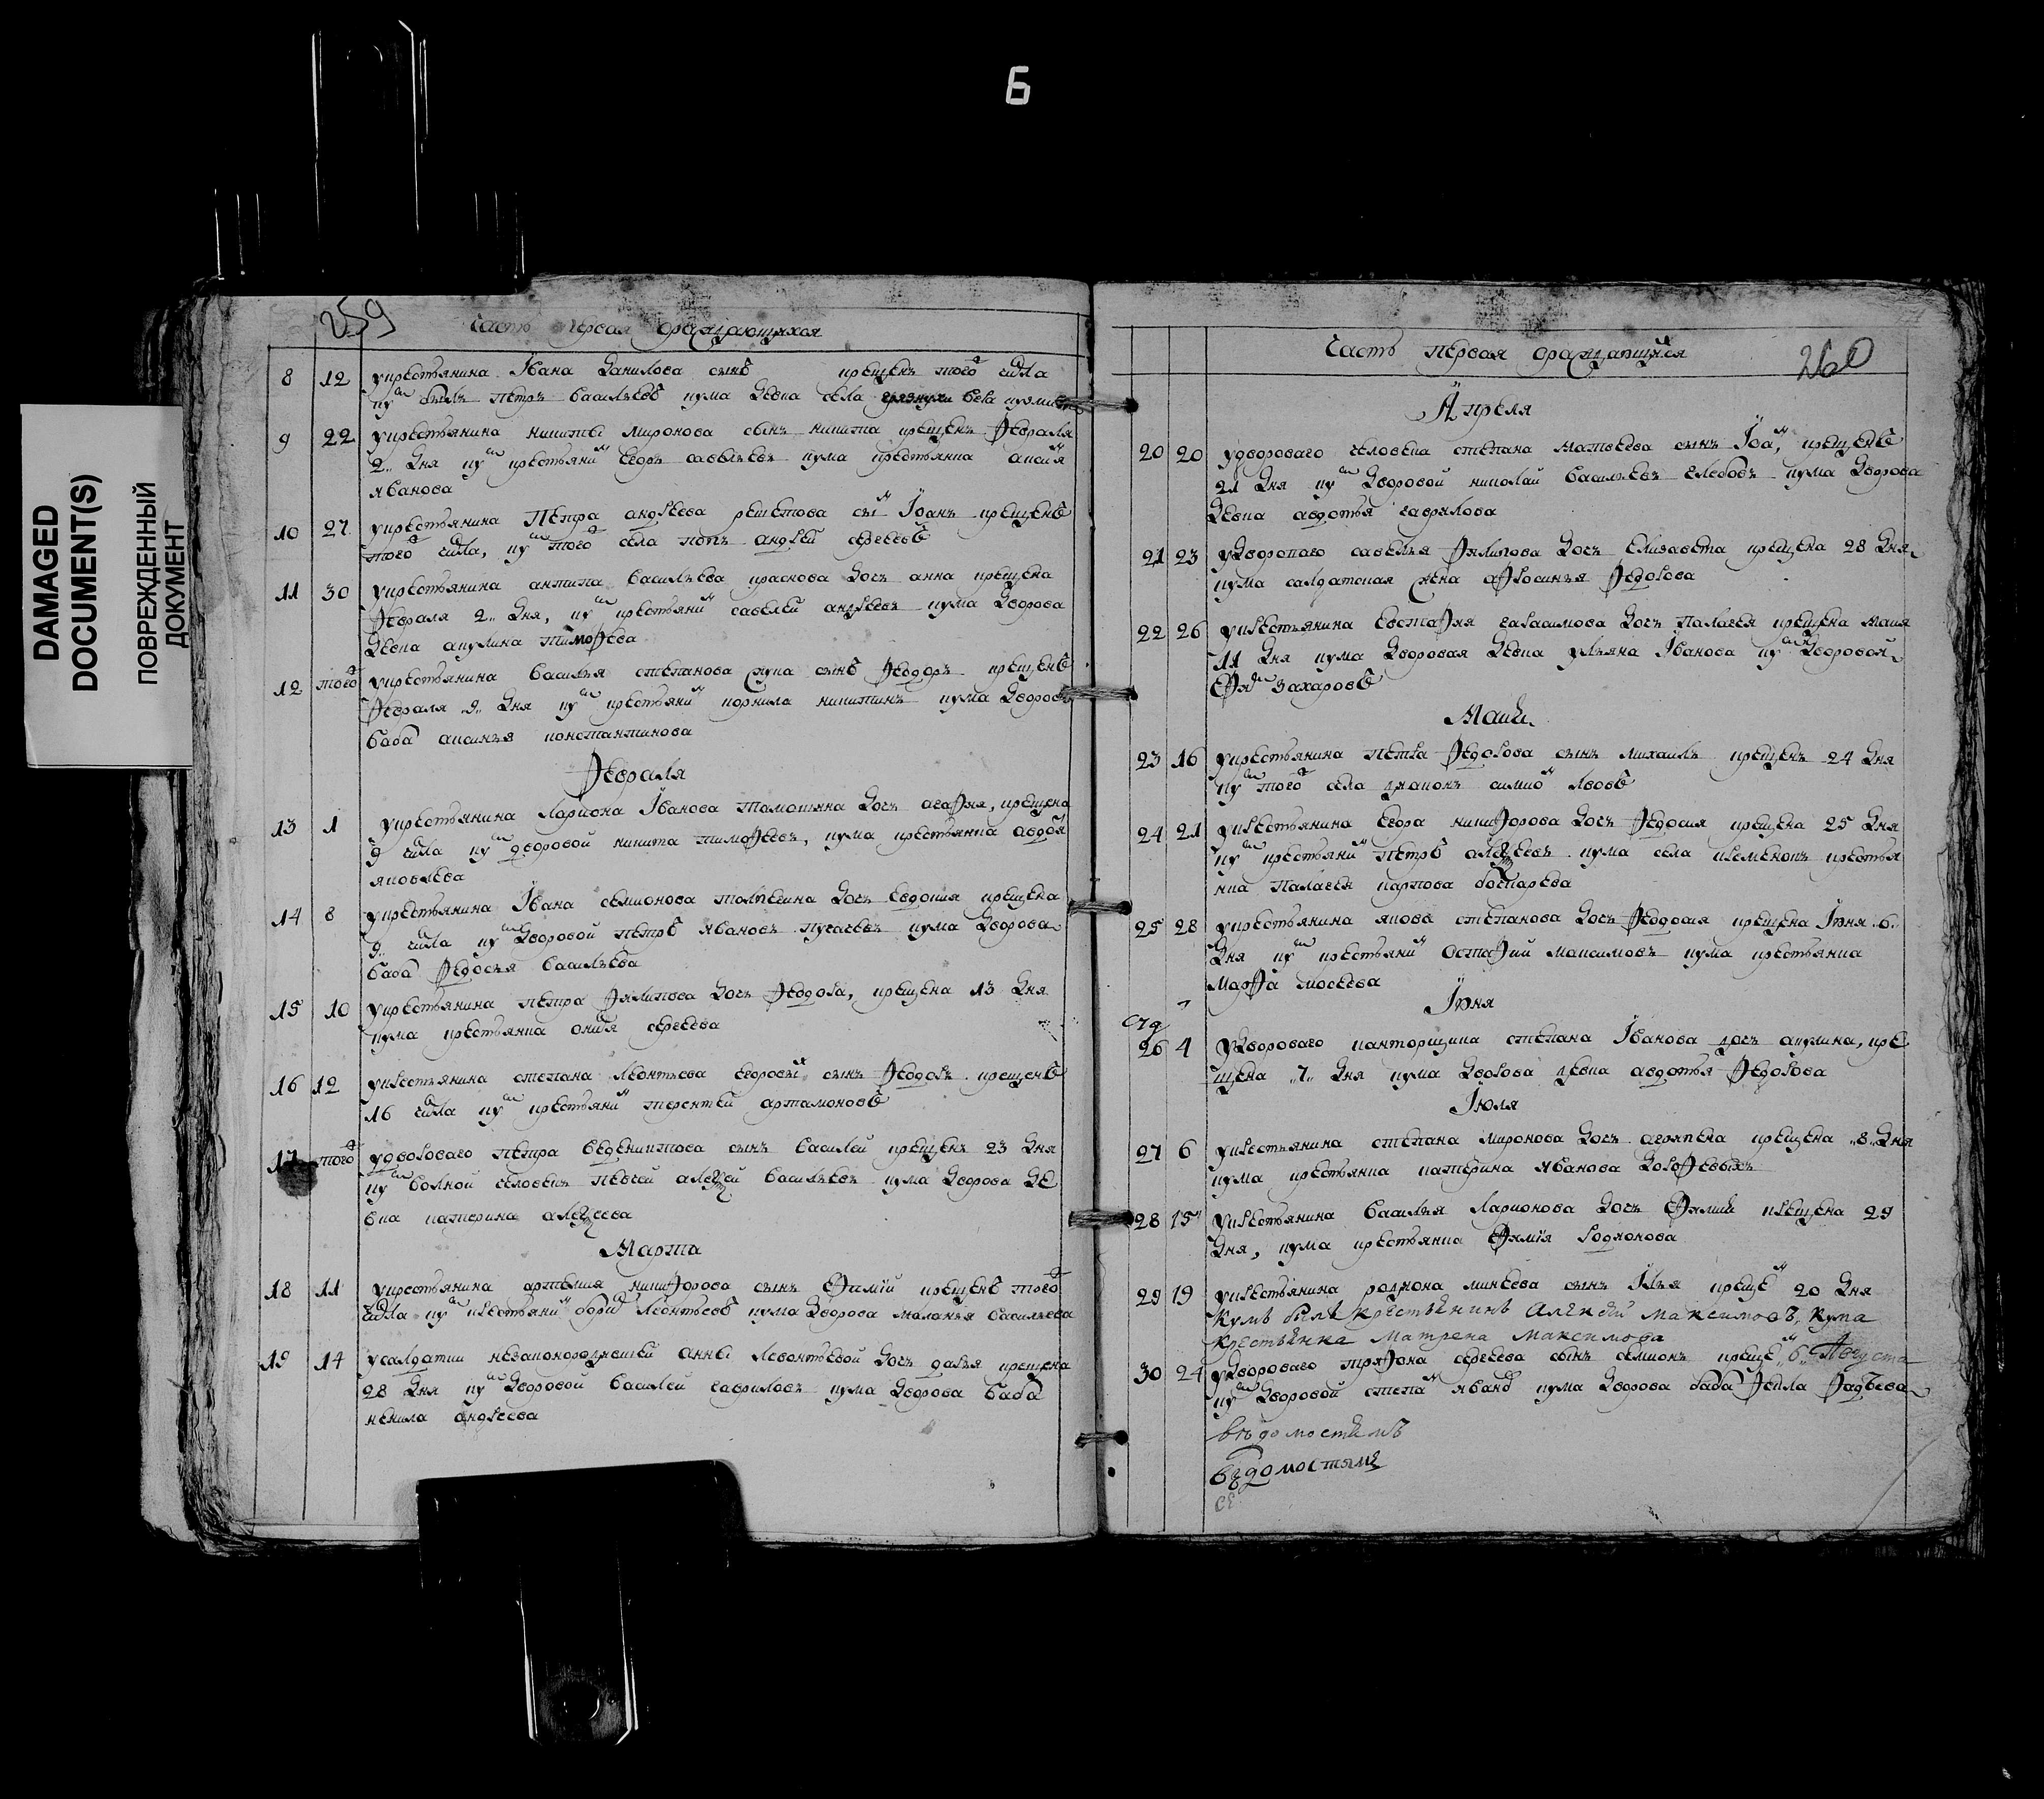 6
DAMAGED
DOCUMENT(S)
ПОВРЕЖДЕННЫЙ
ДОКУМЕНТ
259
Часть первая ораждающихся
8 12 укрестьянина Iвана Данилова сынъ крещенъ того числа
кумъ былъ петръ васильевъ кума девка села
9 22 укрестьянина никиты миронова сынъ никита крещенъ февраля
2 дня кумъ крестьянинъ егоръ савельевъ кума крестьянка
иванова
10 27 укрестьянина Петра андреева решетова сынъ Iоанъ крещенъ
того числа, кумъ того села попъ андрей сергеевъ
11 30 укрестьянина антипа васильева краснова дочь анна крещена
февраля 2 дня, кумъ крестьянинъ савелей андреевъ кума дворова
девка акулина тимофеева
12 того укрестьянина василья степанова сынъ феодоръ крещенъ
февраля 9 дня кумъ крестьянинъ корнила никитинъ кума дворова
баба аксинья константинова
Февраля
13 1 укрестьянина Лариона Iванова дочь агафия, крещена
9 числа кумъ дворовой никита тимофеевъ, кума крестьянка авдотья
яковлева
14 8 укрестьянина Iвана семионова дочь евдокия крещена
9 числа кумъ дворовой петръ ивановъ пугачевъ кума дворова
баба федосья васильева
15 10 укрестьянина петра филипова дочь феодора, крещена 13 дня
кума крестьянка сергеева
16 12 укрестьянина степана леонтьева сынъ феодоръ крещенъ
16 числа кумъ крестьянинъ терентей артамоновъ
17 того удворового петра веденихтова сынъ василей крещенъ 23 дня
кумъ волной человекъ певчей алексей васильевъ кума дворова де
вка катерина алексеева
Марта
18 11 укрестьянина артемия никифорова сынъ Ефимий крещенъ того
числа кумъ крестьянинъ борисъ леонтьевъ кума дворова маланья васильева
19 14 усалдатки незаконородившей анны левонтьевой дочь дарья крещена
28 дня кумъ дворовой василей гавриловъ кума дворова баба
ненила андреева
Часть первая ораждающихся
260
Апреля
20 20 удворового человека степана матвеева сынъ Iоанъ, крещенъ
21 дня кумъ дворовой николай васильевъ глебовъ кума дворова
девка авдотья гаврилова
21 23 удворового савелья филипова дочь елизавета крещена 28 дня
кума салдатская жена афросинья федорова
22 26 укрестьянина евстафия гарасимова дочь палагея крещена маия
11 дня кума дворовая девка ульяна Iванова кумъ дворовой
захаровъ
Маия
23 16 укрестьянина петра федорова сынъ михаилъ крещенъ 24 дня
кумъ того села диаконъ симионъ львовъ
24 21 укрестьянина егора никифорова дочь федосия крещена 25 дня
кумъ крестьянинъ петръ алексеевъ кума села крестья
нка палагея карпова
25 28 укрестьянина якова степанова дочь феодосия крещена Iюня 6
дня кумъ крестьянинъ остафий максимовъ кума крестьянка
марфа мосеева
Iюня
26 4 удворового канторщика степана Iванова дочь акулина, кре
щена 7 дня кума дворова девка авдотья федорова
Iюля
27 6 укрестьянина степана миронова дочь агрипена крещена 8 дня
кума крестьянка катерина иванова дорофеевых
28 15 укрестьянина василья ларионова дочь крещена 29
дня, кума крестьянка родионова
29 19 укрестьянина родиона минеева сынъ Илья крещенъ 20 дня
кумъ былъ крестьянинъ алексей максимовъ, кума
крестьянка матрена максимова
30 24 удворового трифона сергеева сынъ семионъ крещенъ 6 Августа
кумъ дворовой степанъ ивановъ кума дворова баба фадеева
ведомостямъ
ведомостямъ